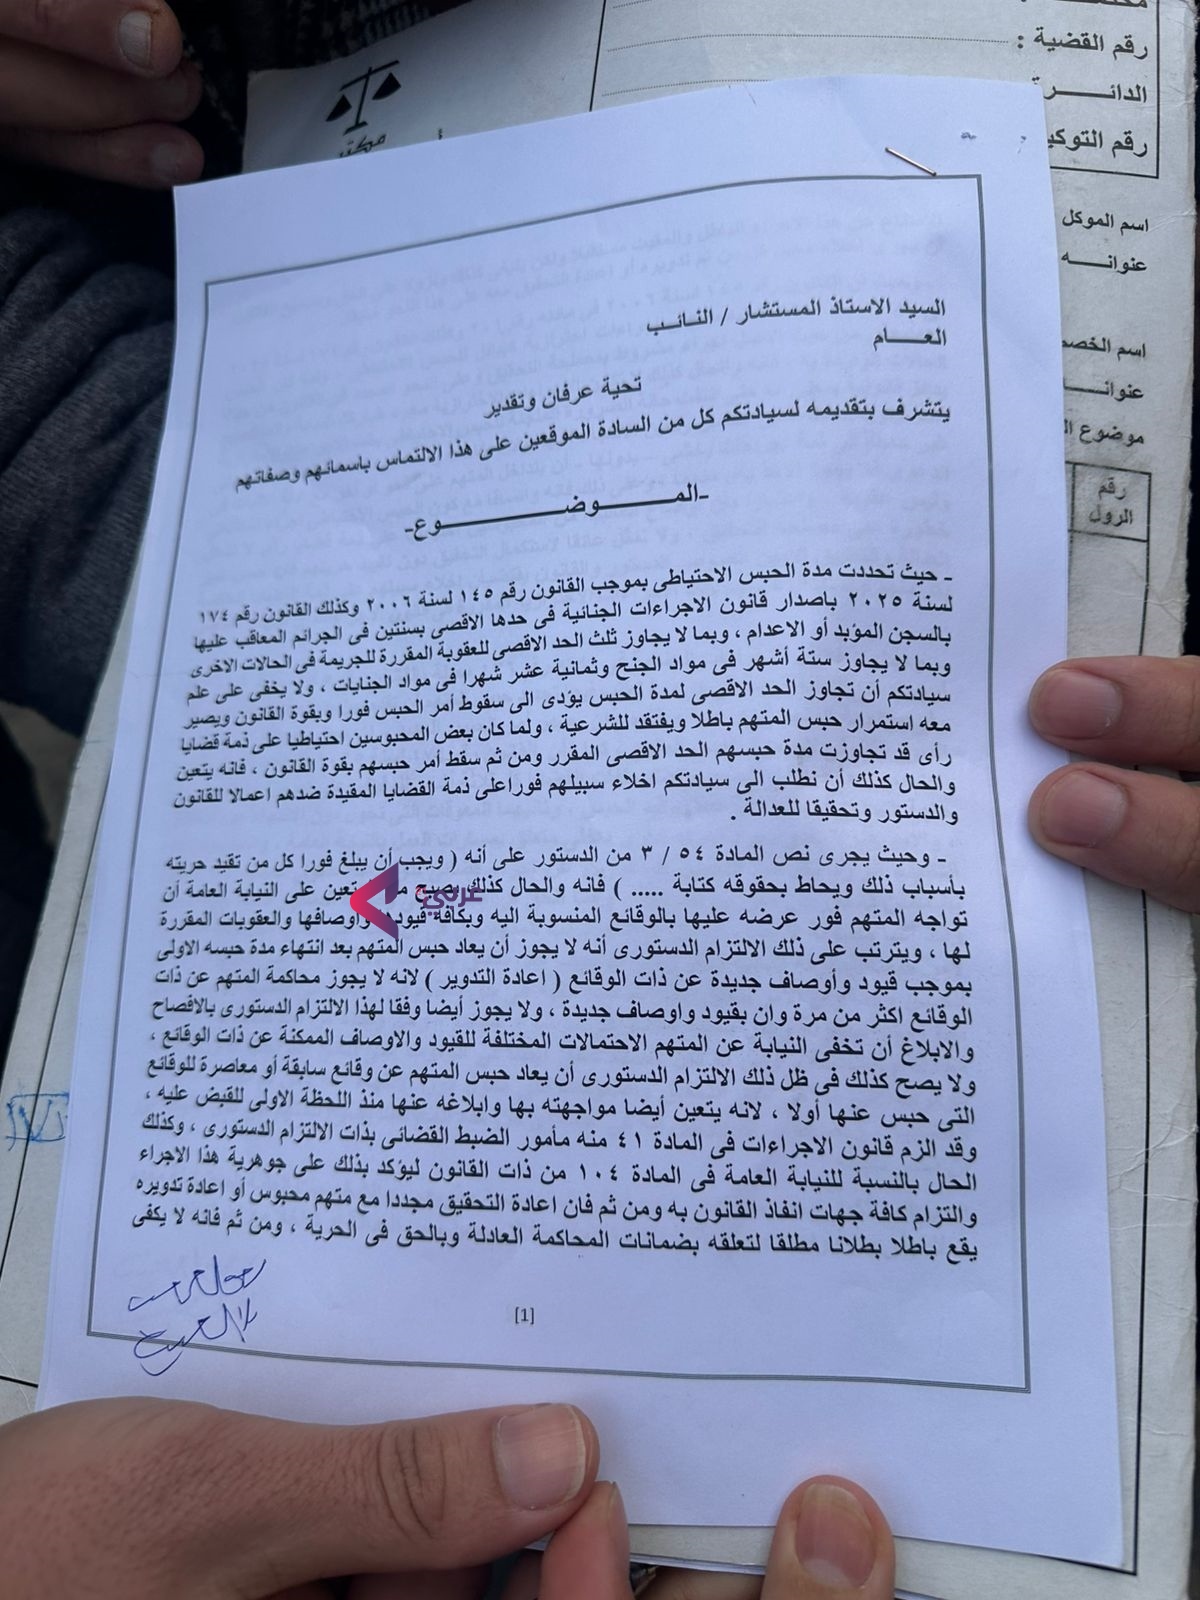 رقم القضية :
الدائـــــــرة
رقم التوكيـ
اسم الموكل
عنوانـــــه
اسم الخصم
عنوانـــــا
موضوع ا
رقم
الرول
مكتب
السيد الاستاذ المستشار / النــائــب
العــــام
تحية عرفان وتقدير
يتشرف بتقديمه لسيادتكم كل من السادة الموقعين على هذا الالتماس باسمائهم وصفاتهم
-المــــــــوضــــــــــــوع-
- حيث تحددت مدة الحبس الاحتياطى بموجب القانون رقم ١٤٥ لسنة ٢٠٠٦ وكذلك القانون رقم ١٧٤
لسنة ٢٠٢٥ باصدار قانون الاجراءات الجنائية فى حدها الاقصى بسنتين فى الجرائم المعاقب عليها
بالسجن المؤبد أو الاعدام ، وبما لا يجاوز ثلث الحد الاقصى للعقوبة المقررة للجريمة فى الحالات الاخرى
وبما لا يجاوز ستة أشهر فى مواد الجنح وثمانية عشر شهرا فى مواد الجنايات ، ولا يخفى على علم
سيادتكم أن تجاوز الحد الاقصى لمدة الحبس يؤدى الى سقوط أمر الحبس فورا وبقوة القانون ويصير
معه استمرار حبس المتهم باطلا ويفتقد للشرعية ، ولما كان بعض المحبوسين احتياطيا على ذمة قضايا
رأى قد تجاوزت مدة حبسهم الحد الاقصى المقرر ومن ثم سقط أمر حبسهم بقوة القانون ، فانه يتعين
والحال كذلك أن نطلب الى سيادتكم اخلاء سبيلهم فوراعلى ذمة القضايا المقيدة ضدهم اعمالا للقانون
والدستور وتحقيقا للعدالة .
- وحيث يجرى نص المادة ٥٤ / ٣ من الدستور على أنه ( ويجب أن يبلغ فورا كل من تقيد حريته
بأسباب ذلك ويحاط بحقوقه كتابة ..... ) فانه والحال كذلك يصبح يتعين على النيابة العامة أن
تواجه المتهم فور عرضه عليها بالوقائع المنسوبة اليه وبكافة قيودها واوصافها والعقوبات المقررة
لها ، ويترتب على ذلك الالتزام الدستورى أنه لا يجوز أن يعاد حبس المتهم بعد انتهاء مدة حبسه الاولى
بموجب قيود وأوصاف جديدة عن ذات الوقائع ( اعادة التدوير ) لانه لا يجوز محاكمة المتهم عن ذات
الوقائع اكثر من مرة وان بقيود واوصاف جديدة ، ولا يجوز أيضا وفقا لهذا الالتزام الدستورى بالافصاح
والابلاغ أن تخفى النيابة عن المتهم الاحتمالات المختلفة للقيود والاوصاف الممكنة عن ذات الوقائع ،
ولا يصح كذلك فى ظل ذلك الالتزام الدستورى أن يعاد حبس المتهم عن وقائع سابقة أو معاصرة للوقائع
التى حبس عنها أولا ، لانه يتعين أيضا مواجهته بها وابلاغه عنها منذ اللحظة الاولى للقبض عليه ،
وقد الزم قانون الاجراءات فى المادة ٤١ منه مأمور الضبط القضائى بذات الالتزام الدستورى ، وكذلك
الحال بالنسبة للنيابة العامة فى المادة ١٠٤ من ذات القانون ليؤكد بذلك على جوهرية هذا الاجراء
والتزام كافة جهات انفاذ القانون به ومن ثم فان اعادة التحقيق مجددا مع متهم محبوس أو اعادة تدويره
يقع باطلا بطلانا مطلقا لتعلقه بضمانات المحاكمة العادلة وبالحق فى الحرية ، ومن ثم فانه لا يكفى
[1]
عربي